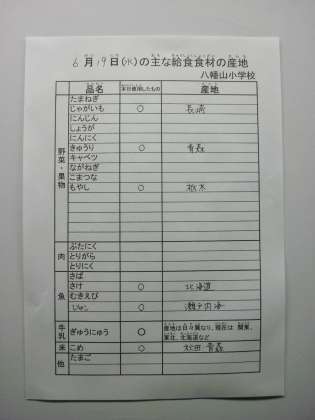 6月19日(水)の主な給食食材の産地
八幡山小学校
品名 本日使用したもの 産地
野菜・果物
たまねぎ
じゃがいも ○ 長崎
にんじん
しょうが
にんにく
きゅうり ○ 青森
キャベツ
ながねぎ
こまつな
もやし ○ 栃木
肉
ぶたにく
とりがら
とりにく
魚
さば
さけ ○ 北海道
むきえび
○ 瀬戸内海
牛乳
ぎゅうにゅう ○ 産地は日々異なり、現在は 関東、
東北、北海道など
米 こめ ○ 秋田 青森
他 たまご